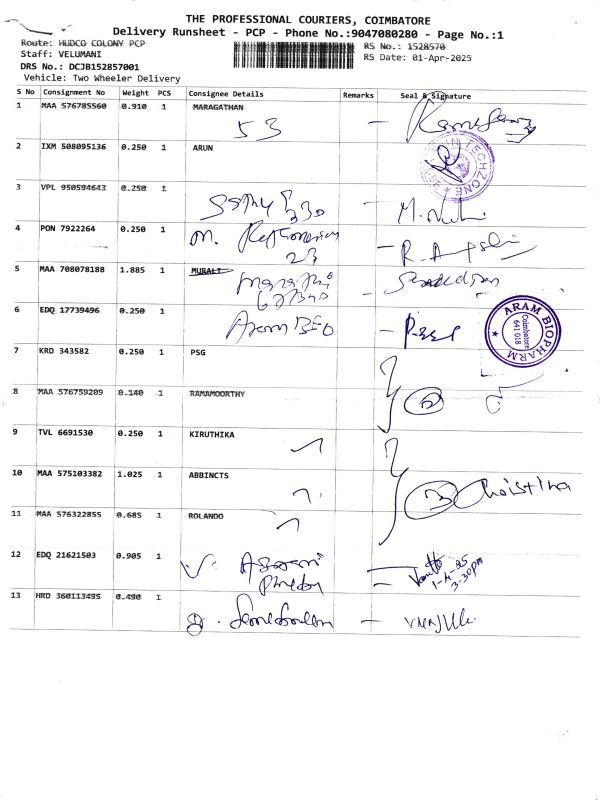 THE PROFESSIONAL COURIERS, COIMBATORE
Delivery Runsheet - PCP - Phone No.:9047080280 - Page No.:1
Route: HUDCO COLONY PCP
RS No.: 1528570
Staff: VELUMANI
RS Date: 01-Apr-2025
DRS No.: DCJB152857001
Vehicle: Two Wheeler Delivery
S No Consignment No Weight PCS Consignee Details Remarks Seal & Signature
1 MAA 576785560 0.910 1 MARAGATHAN
53
2 IXM 508095136 0.250 1 ARUN
TECHZONE
3 VPL 950594643 0.250 1
4 PON 7922264 0.250 1 m.
23
5 MAA 708078188 1.885 1 MURALI
6 EDQ 17739496 0.250 1 Aram BIO
ARAM BIOPHARM
Coimbatore
641 018
7 KRD 343582 0.250 1 PSG
8 MAA 576759209 0.140 1 RAMAMOORTHY
2
9 TVL 6691530 0.250 1 KIRUTHIKA
10 MAA 575103382 1.025 1 ABBINCTS
3 Christina
11 MAA 576322855 0.685 1 ROLANDO
12 EDQ 21621503 0.905 1 V.
1-4-25
3-30pm
13 HRD 360113495 0.490 1